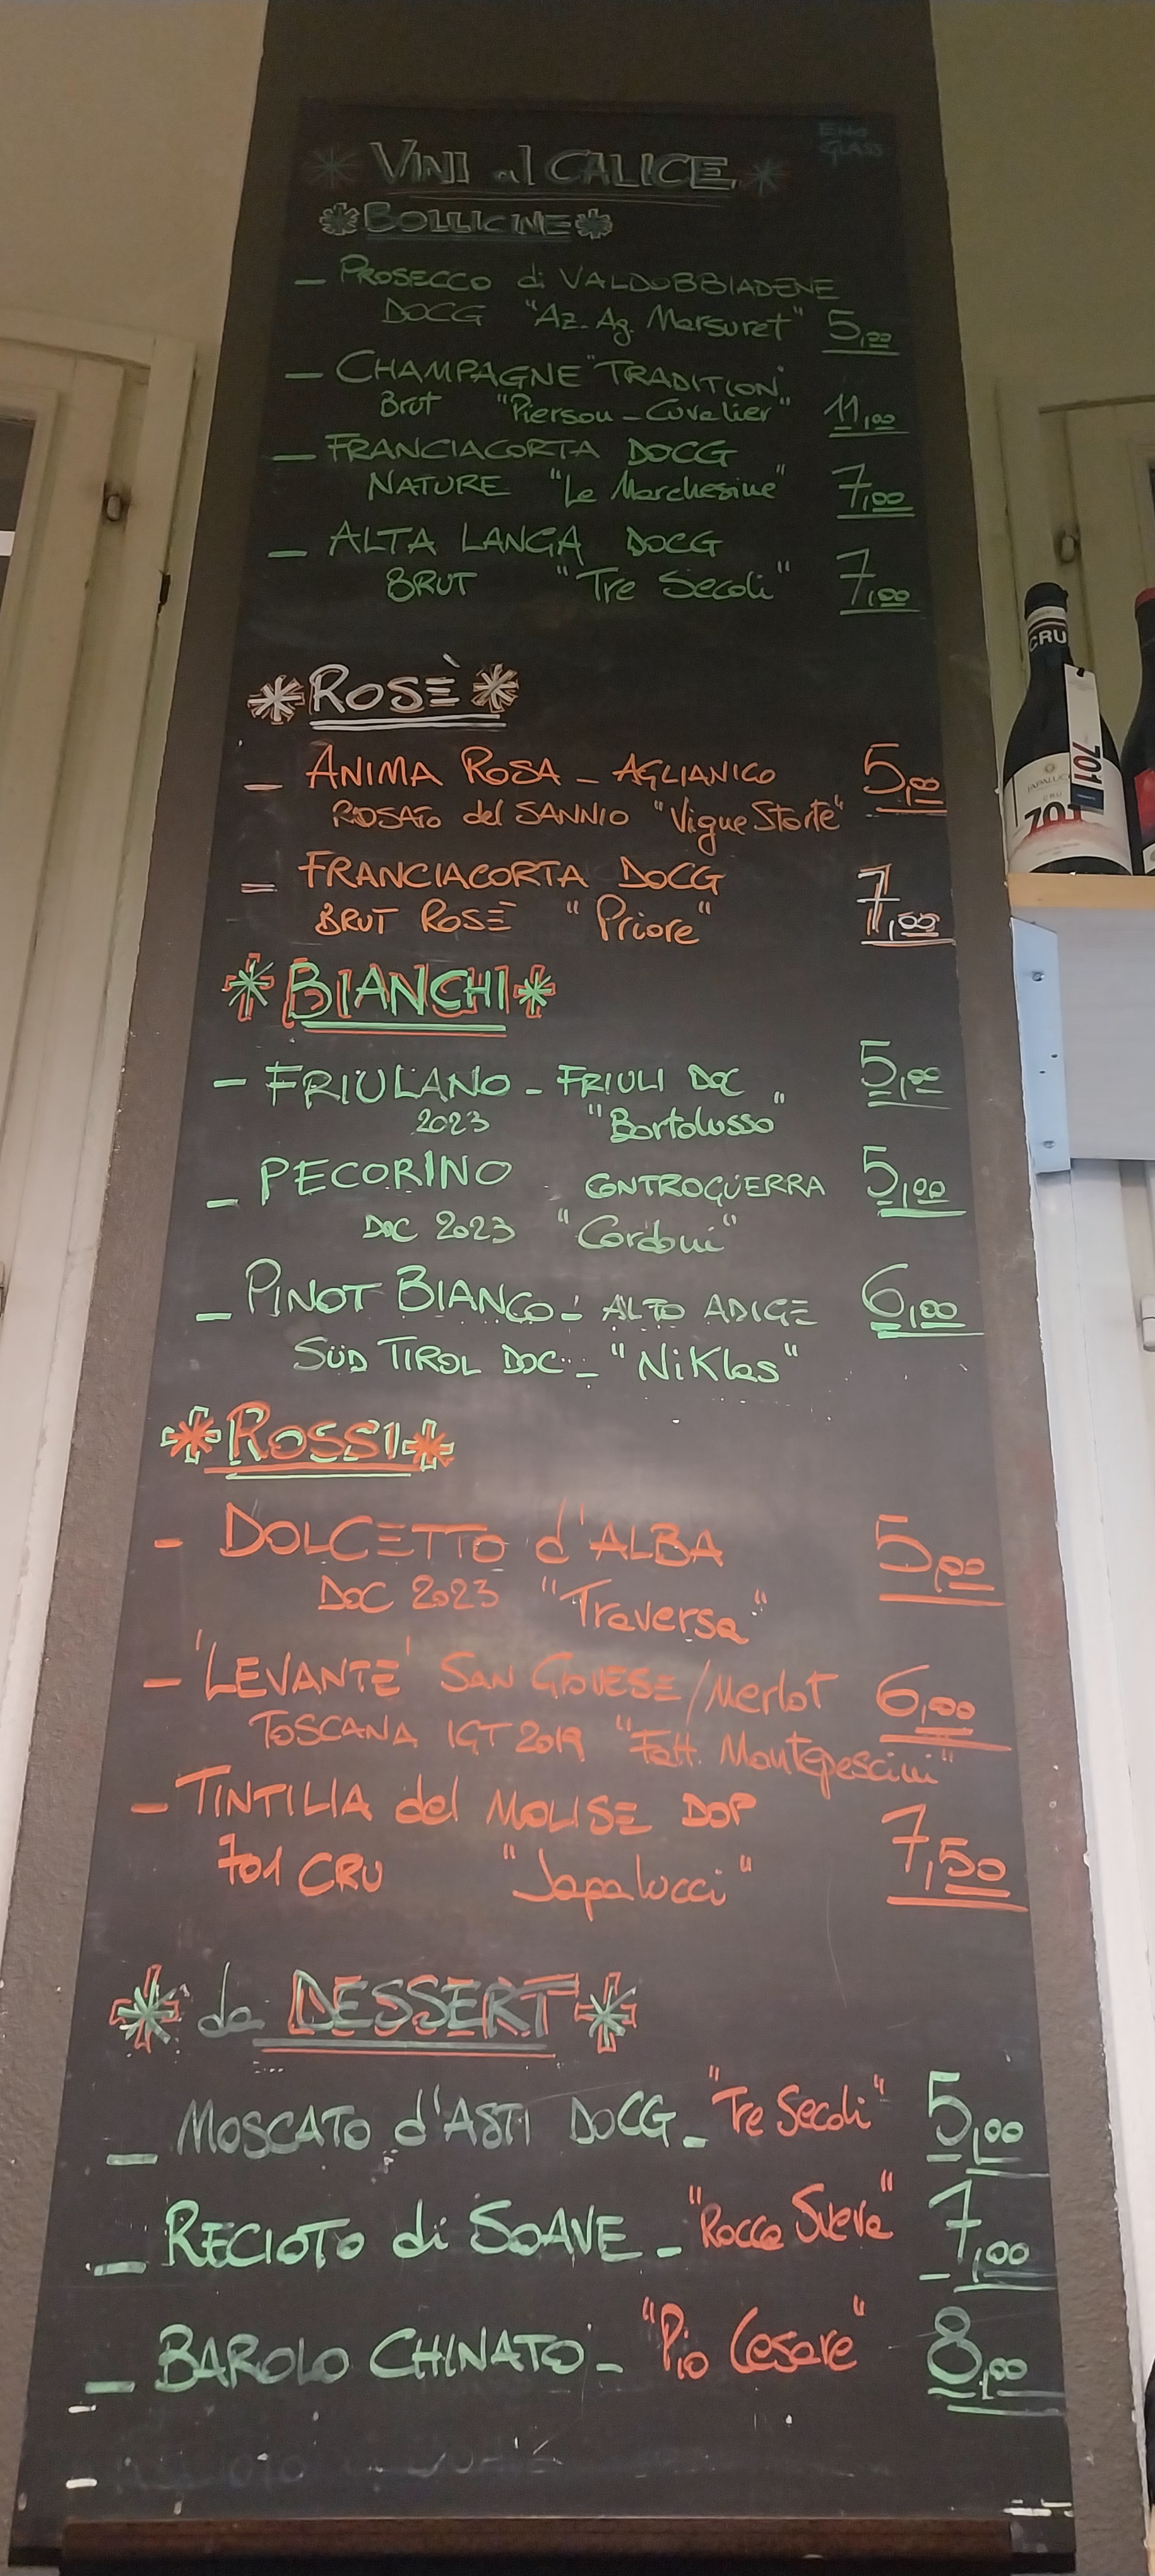 ENO
GLASS
VINI al CALICE
BOLLICINE
– PROSECCO di VALDOBBIADENE
DOCG "Az. Ag. Marsuret" 5,00
– CHAMPAGNE "TRADITION"
Brut "Pierson-Cuvelier" 11,00
– FRANCIACORTA DOCG
NATURE "Le Marchesine" 7,00
– ALTA LANGA DOCG
BRUT "Tre Secoli" 7,00
ROSÈ
– ANIMA ROSA – AGLIANICO 5,00
ROSATO del SANNIO "Vigne Storte"
– FRANCIACORTA DOCG 7,00
BRUT ROSÈ "Priore"
BIANCHI
– FRIULANO – FRIULI DOC 5,00
2023 "Bortolusso"
– PECORINO CONTROGUERRA 5,00
DOC 2023 "Cordoni"
– PINOT BIANCO – ALTO ADIGE 6,00
SÜD TIROL DOC – "Niklas"
ROSSI
– DOLCETTO d'ALBA 5,00
DOC 2023 "Traversa"
– 'LEVANTE' SAN GIOVESE/Merlot 6,00
TOSCANA IGT 2019 "Fatt. Montepescini"
– TINTILIA del MOLISE DOP 7,50
701 CRU "Japalucci"
da DESSERT
– MOSCATO d'ASTI DOCG – "Tre Secoli" 5,00
– RECIOTO di SOAVE – "Rocca Sveva" 7,00
– BAROLO CHINATO – "Pio Cesare" 8,00
CRU
701
JAPALUCCI
CRU
701